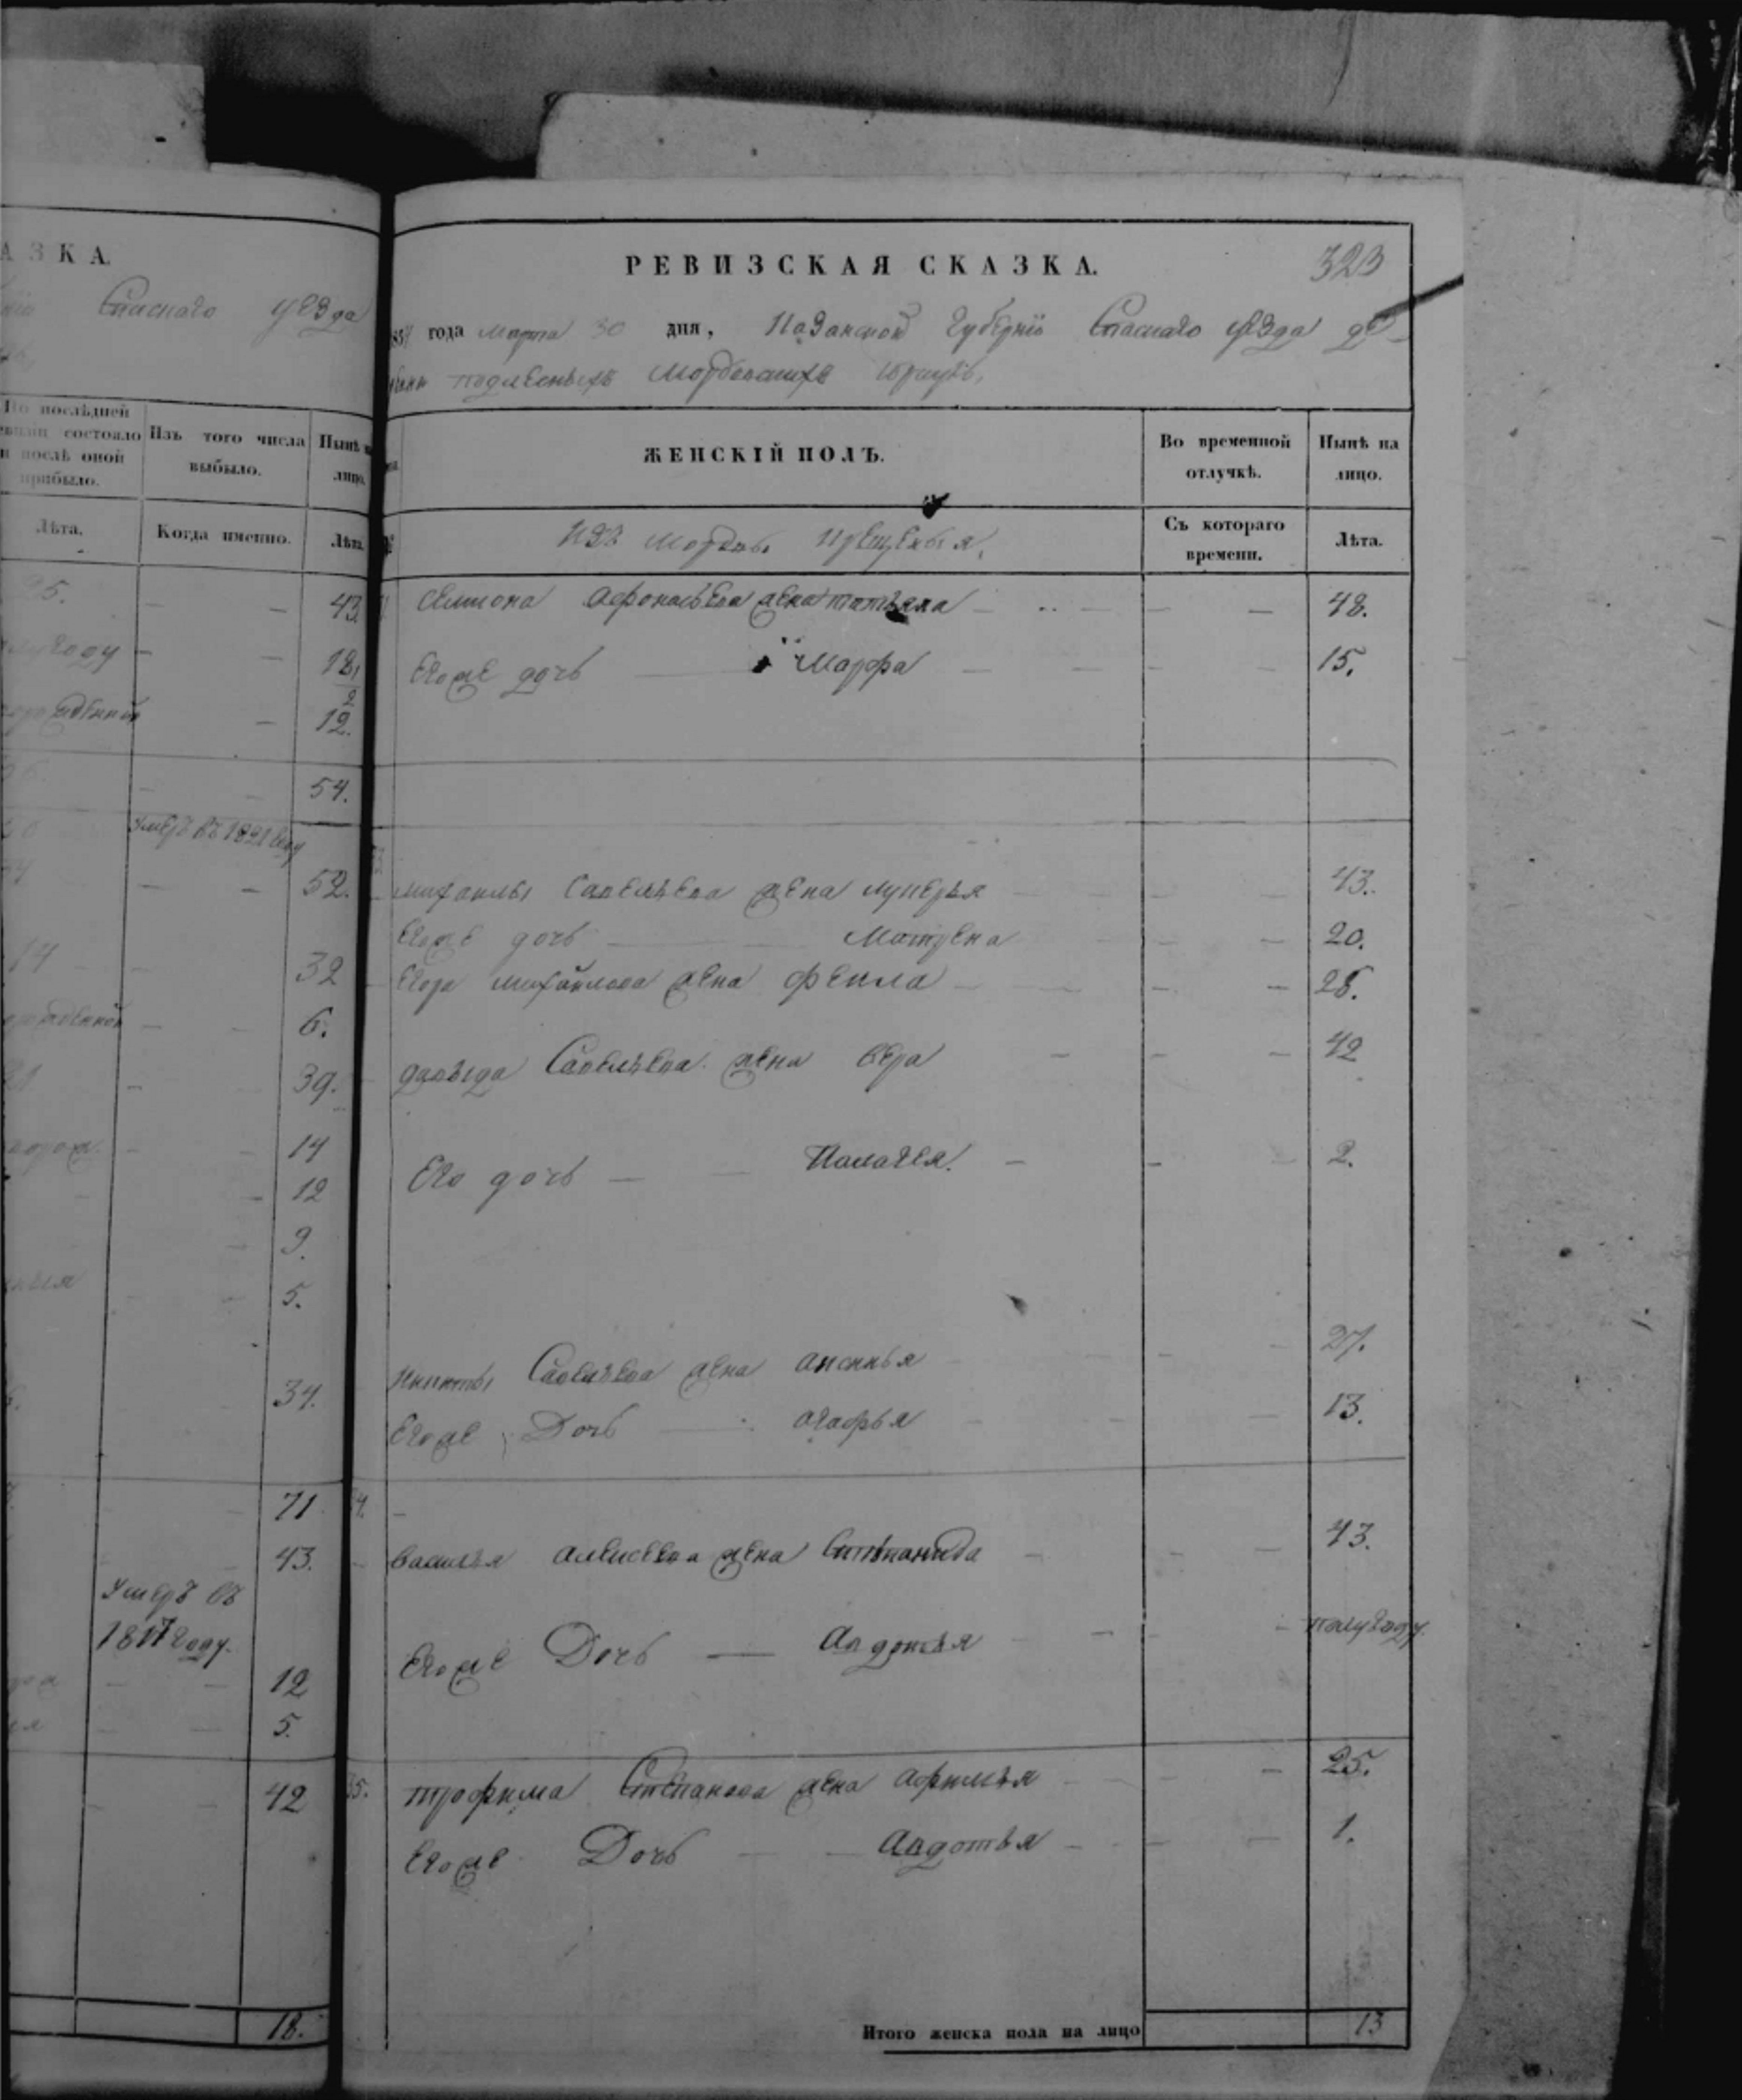 АЗКА.
Спаскаго уезда
По последней
состояло
и послѣ оной
прибыло.
Изъ того числа
выбыло.
Нынѣ на
лицо.
Лѣта.
Когда именно.
Лѣта.
43
12.
54.
умеръ въ 1821 году
52.
32
6.
39.
14
12
9.
5.
34.
71
43.
Умеръ въ
году.
12
5.
42
18.
РЕВИЗСКАЯ СКАЗКА.
323
года марта 30 дня, Казанской губерніи Спаскаго уезда де
Мордовскихъ
ЖЕНСКІЙ ПОЛЪ.
Во временной
отлучкѣ.
Нынѣ на
лицо.
изъ мордвы крещеныя,
Съ котораго
времени.
Лѣта.
Симиона Афонасьева жена татьяна 48.
Егоже дочь Марфа 15.
михаилы Савельева жена лукерья 43.
Егоже дочь Матрена 20.
Егора михайлова жена фекла 28.
давыда Савельева жена вера 42
Его дочь Палагея. 2.
Никиты Савельева жена аксинья 27.
Егоже Дочь агафья 13.
василья алексеева жена Степанида 43.
Егоже Дочь Авдотья полугоду.
35. трофима Степанова жена афимья 25.
Егоже Дочь Авдотья 1.
Итого женска пола на лицо 13